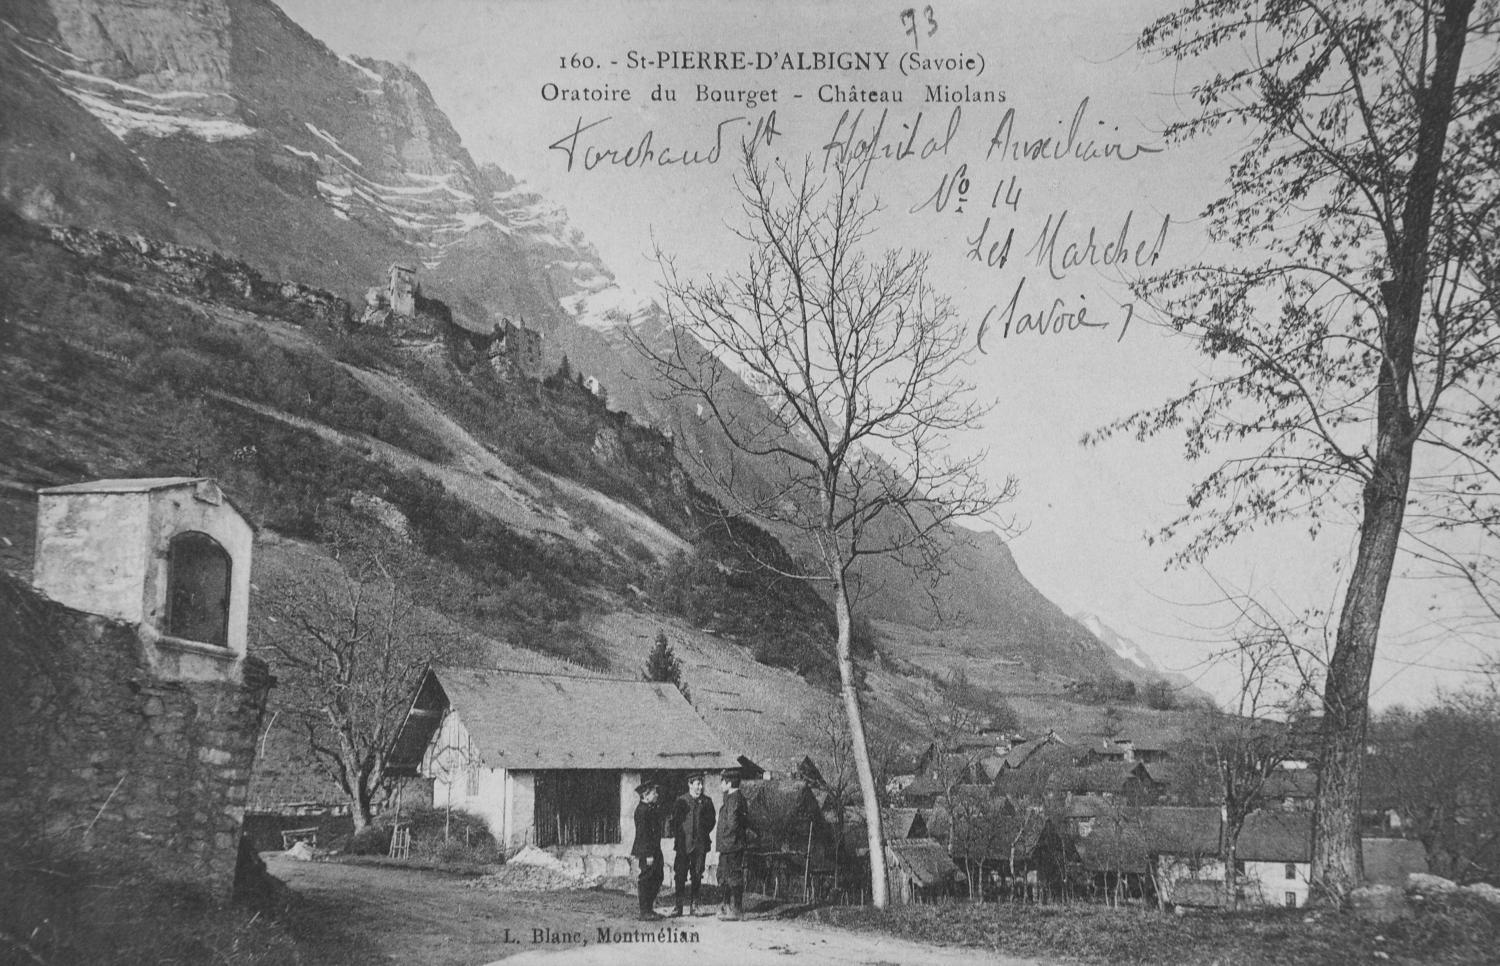 73
160. - St-PIERRE-D'ALBIGNY (Savoie)
Oratoire du Bourget - Château Miolans
Hôpital Auxiliaire
Nº 14
Les Marches
(Savoie)
L. Blanc, Montmélian